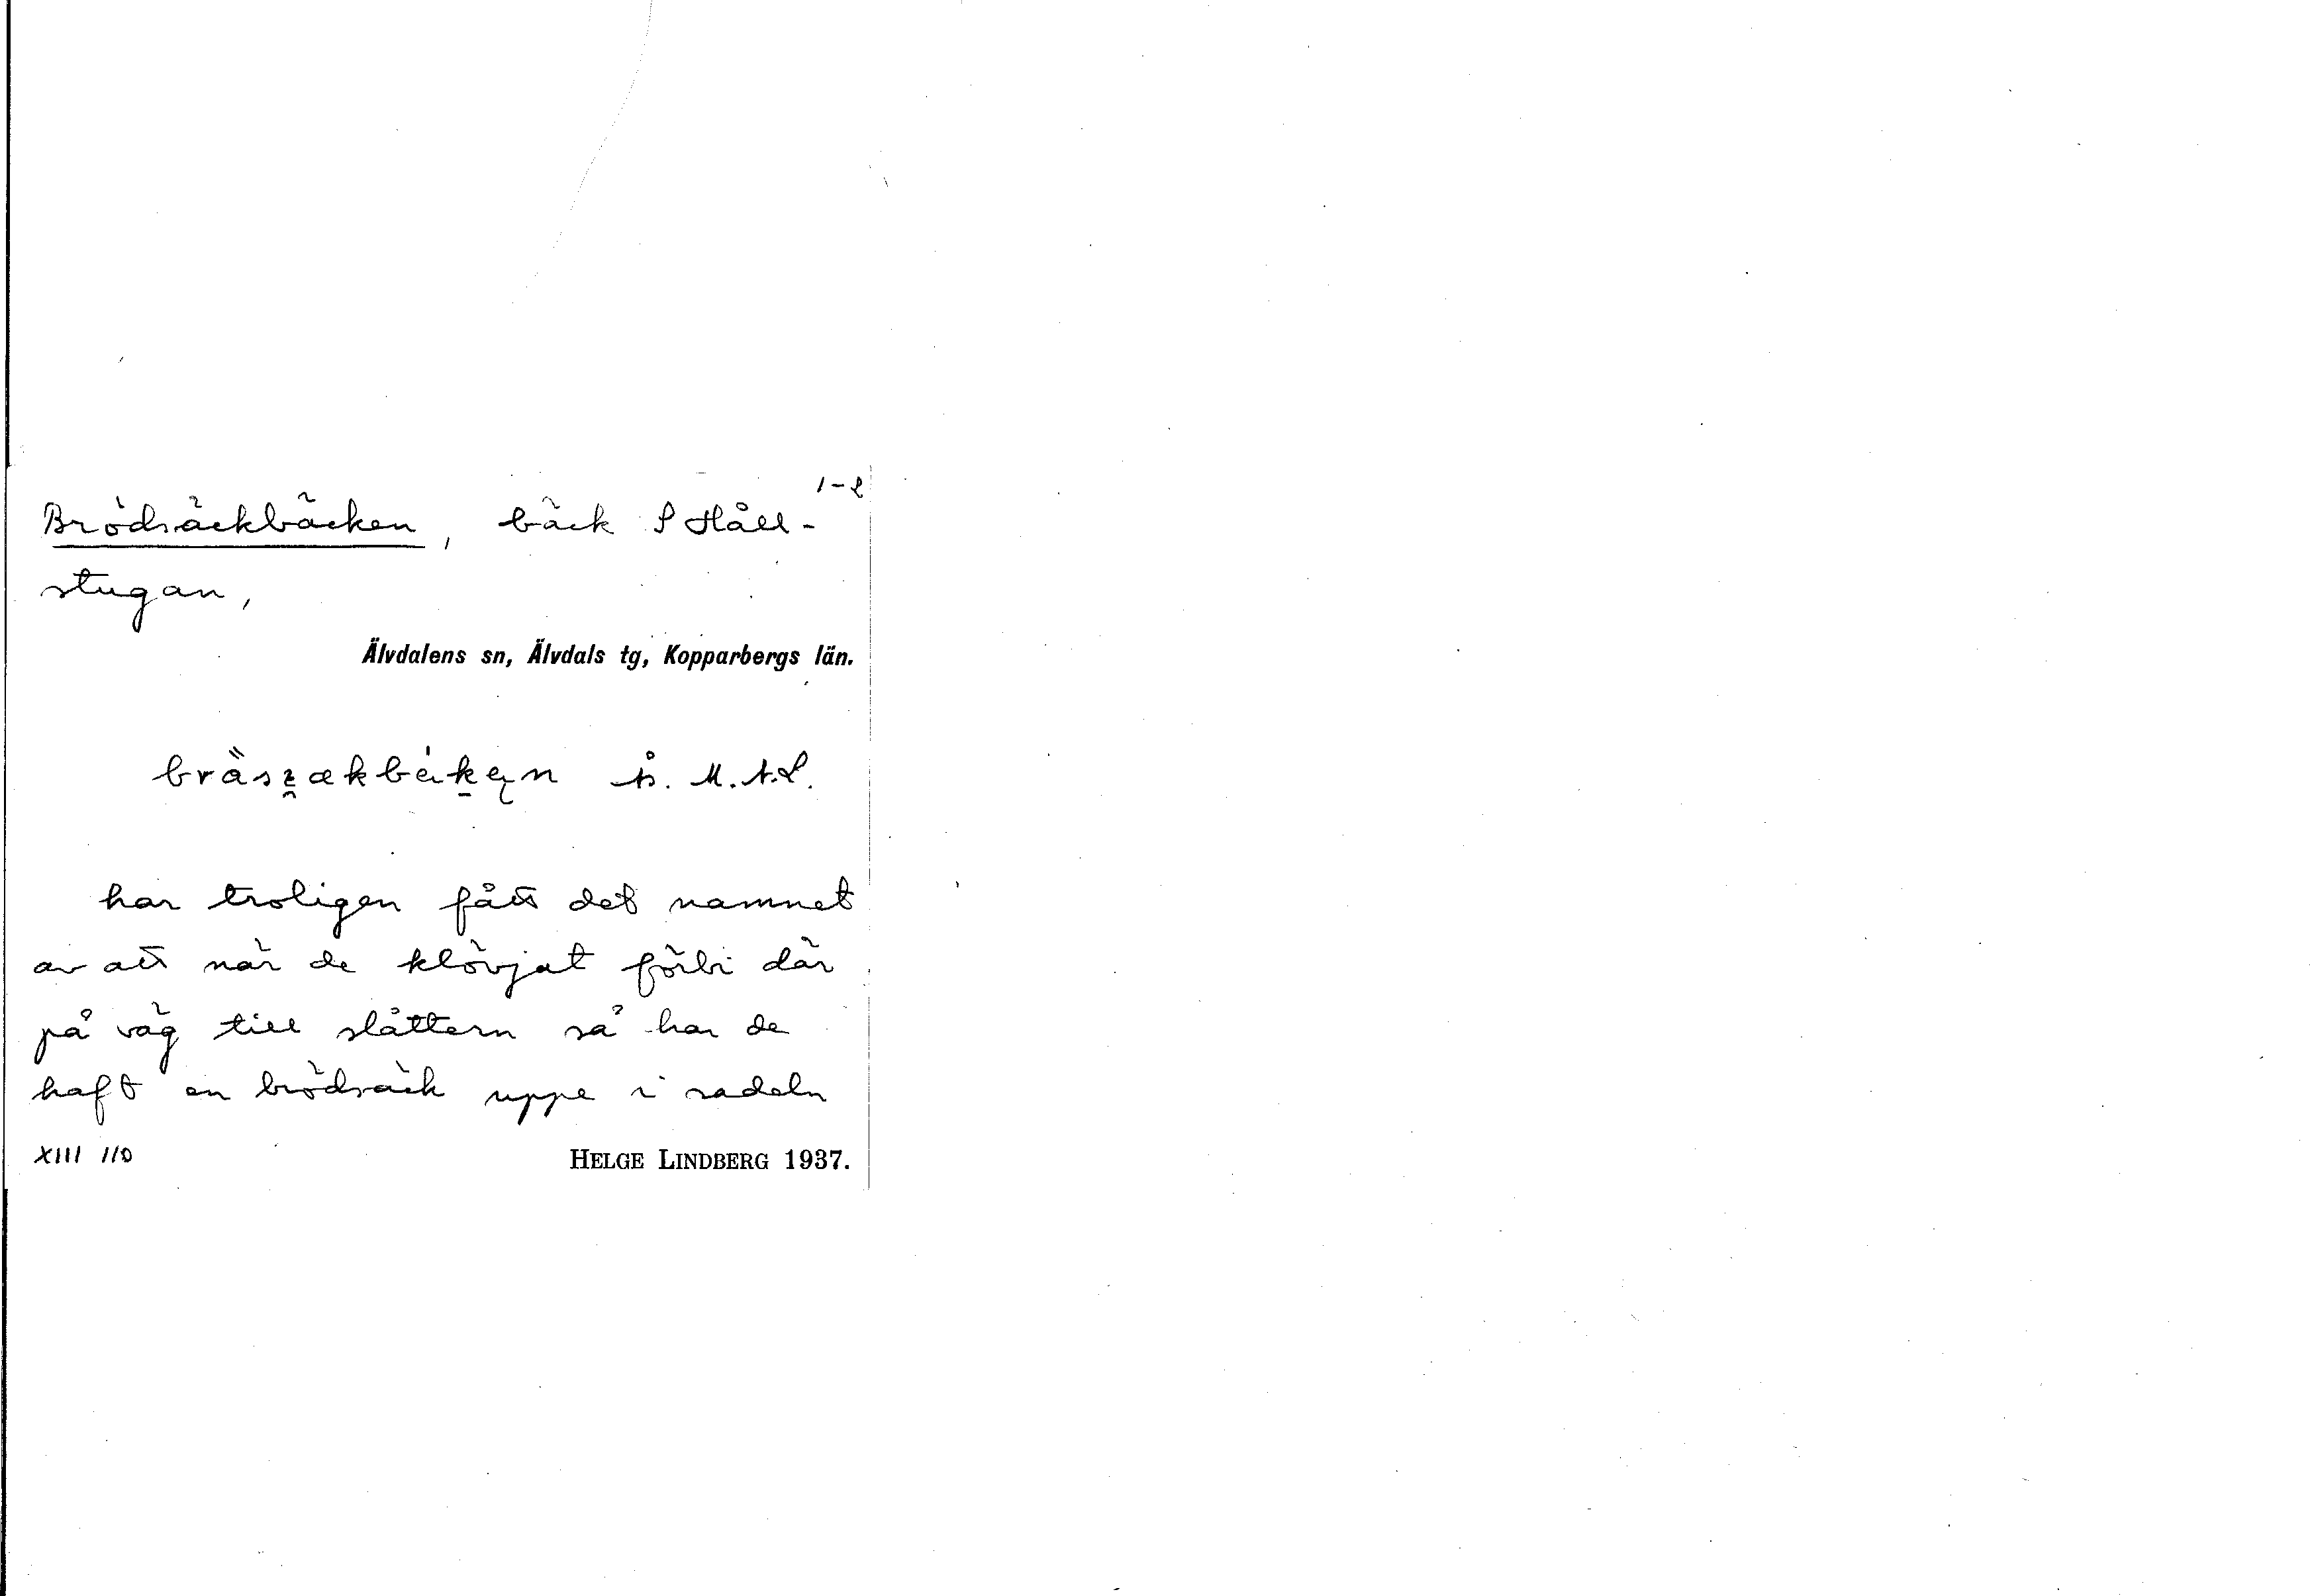 1-2
Brödsäckbäcken, bäck S Håll-
stugan,
Älvdalens sn, Älvdals tg, Kopparbergs län.
har troligen fått det namnet
av att när de klövjat förbi där
på väg till slåttern så har de
haft en brödsäck uppe i sadeln
XIII 110
HELGE LINDBERG 1937.